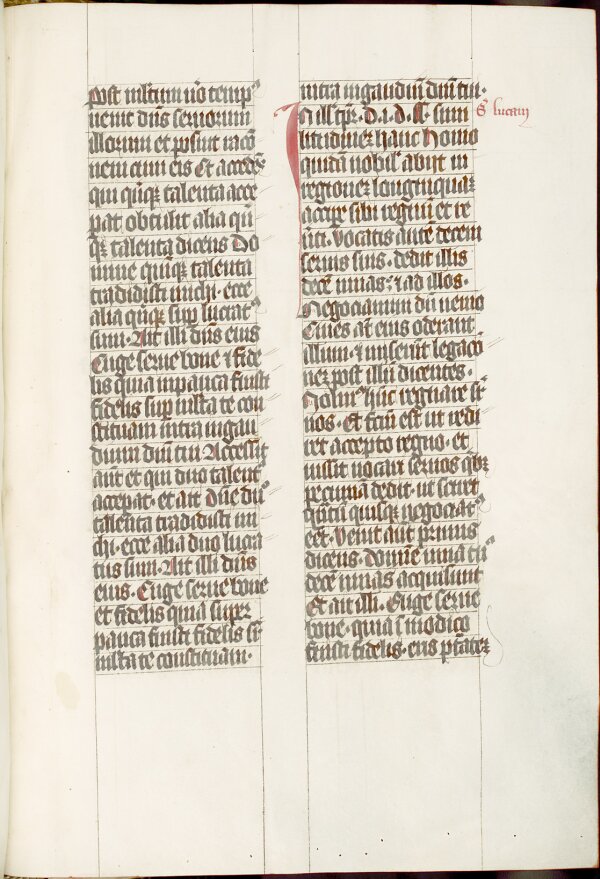 post multum ūo temp⁹
uenit dn̄s seruorum
illorum et posuit racō
nem cum eis Et accedēs
qui qūqꝫ talenta acce
pat obtulit alia qūi
qꝫ talenta dicens Do
mine qūiqꝫ talenta
tradidisti michi · ecce
alia qūqꝫ sup̄ lucrat⁹
sum · Ait illi dn̄s eius
Euge serue bone ⁊ fide
lis quia inpauca fuisti
fidelis sup̄ multa te con
stituam intra ingau
dium dn̄i tui Accessit
aūt et qui duo talent
accepat · et ait Dn̄e du⁹
talenta tradidisti mi
chi · ecce alia duo lucra
tus sum · Ait illi dn̄s
eius · Euge serue bone
et fidelis quia super
pauca fuisti fidelis su
multa te constituam ·
intra ingaudiū dn̄i tui ·
In ill̄ tp̄r · D · i · d · s · sim
litudinez hanc Homo
quidā nobil̓ abijt in
regionez longinquaꝫ
accipe sibi regnū et re
u̓ti · Vocatis aūte decem
seruis suis · dedit illis
decē mnas · ⁊ ad illos ·
Negociamini dū uenio
Ciues at̄ eius oderant
illum · ⁊ miserūt legacō
nez post illū dicentes ·
Nolum⁹ hūc regnare sr̄
nos · Et fcm̄ est ut redi
ret accepto regno · et
iussit uocari seruos qb⁹
pecuniā dedit · ut sciret
q̄ntū quisqꝫ negociat⁹
eēt · Venit aut prim⁹
dicens · Domine mna tu⁹
decē mnas acquisiuit
Et ait illi · Euge serue
bone · quia ī modico
fuisti fidelis · eris ptātez
S̄ lucam